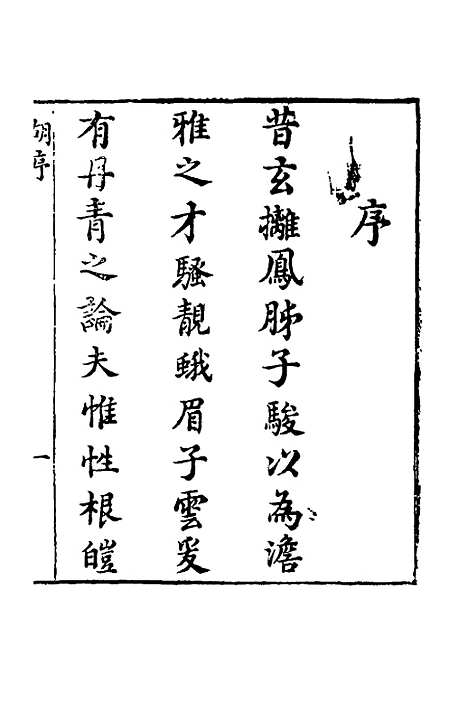 序
昔玄攡鳳胏子駿以為澹
雅之才騷靚蛾眉子雲爰
有丹青之論夫惟性根皚
胡序
一